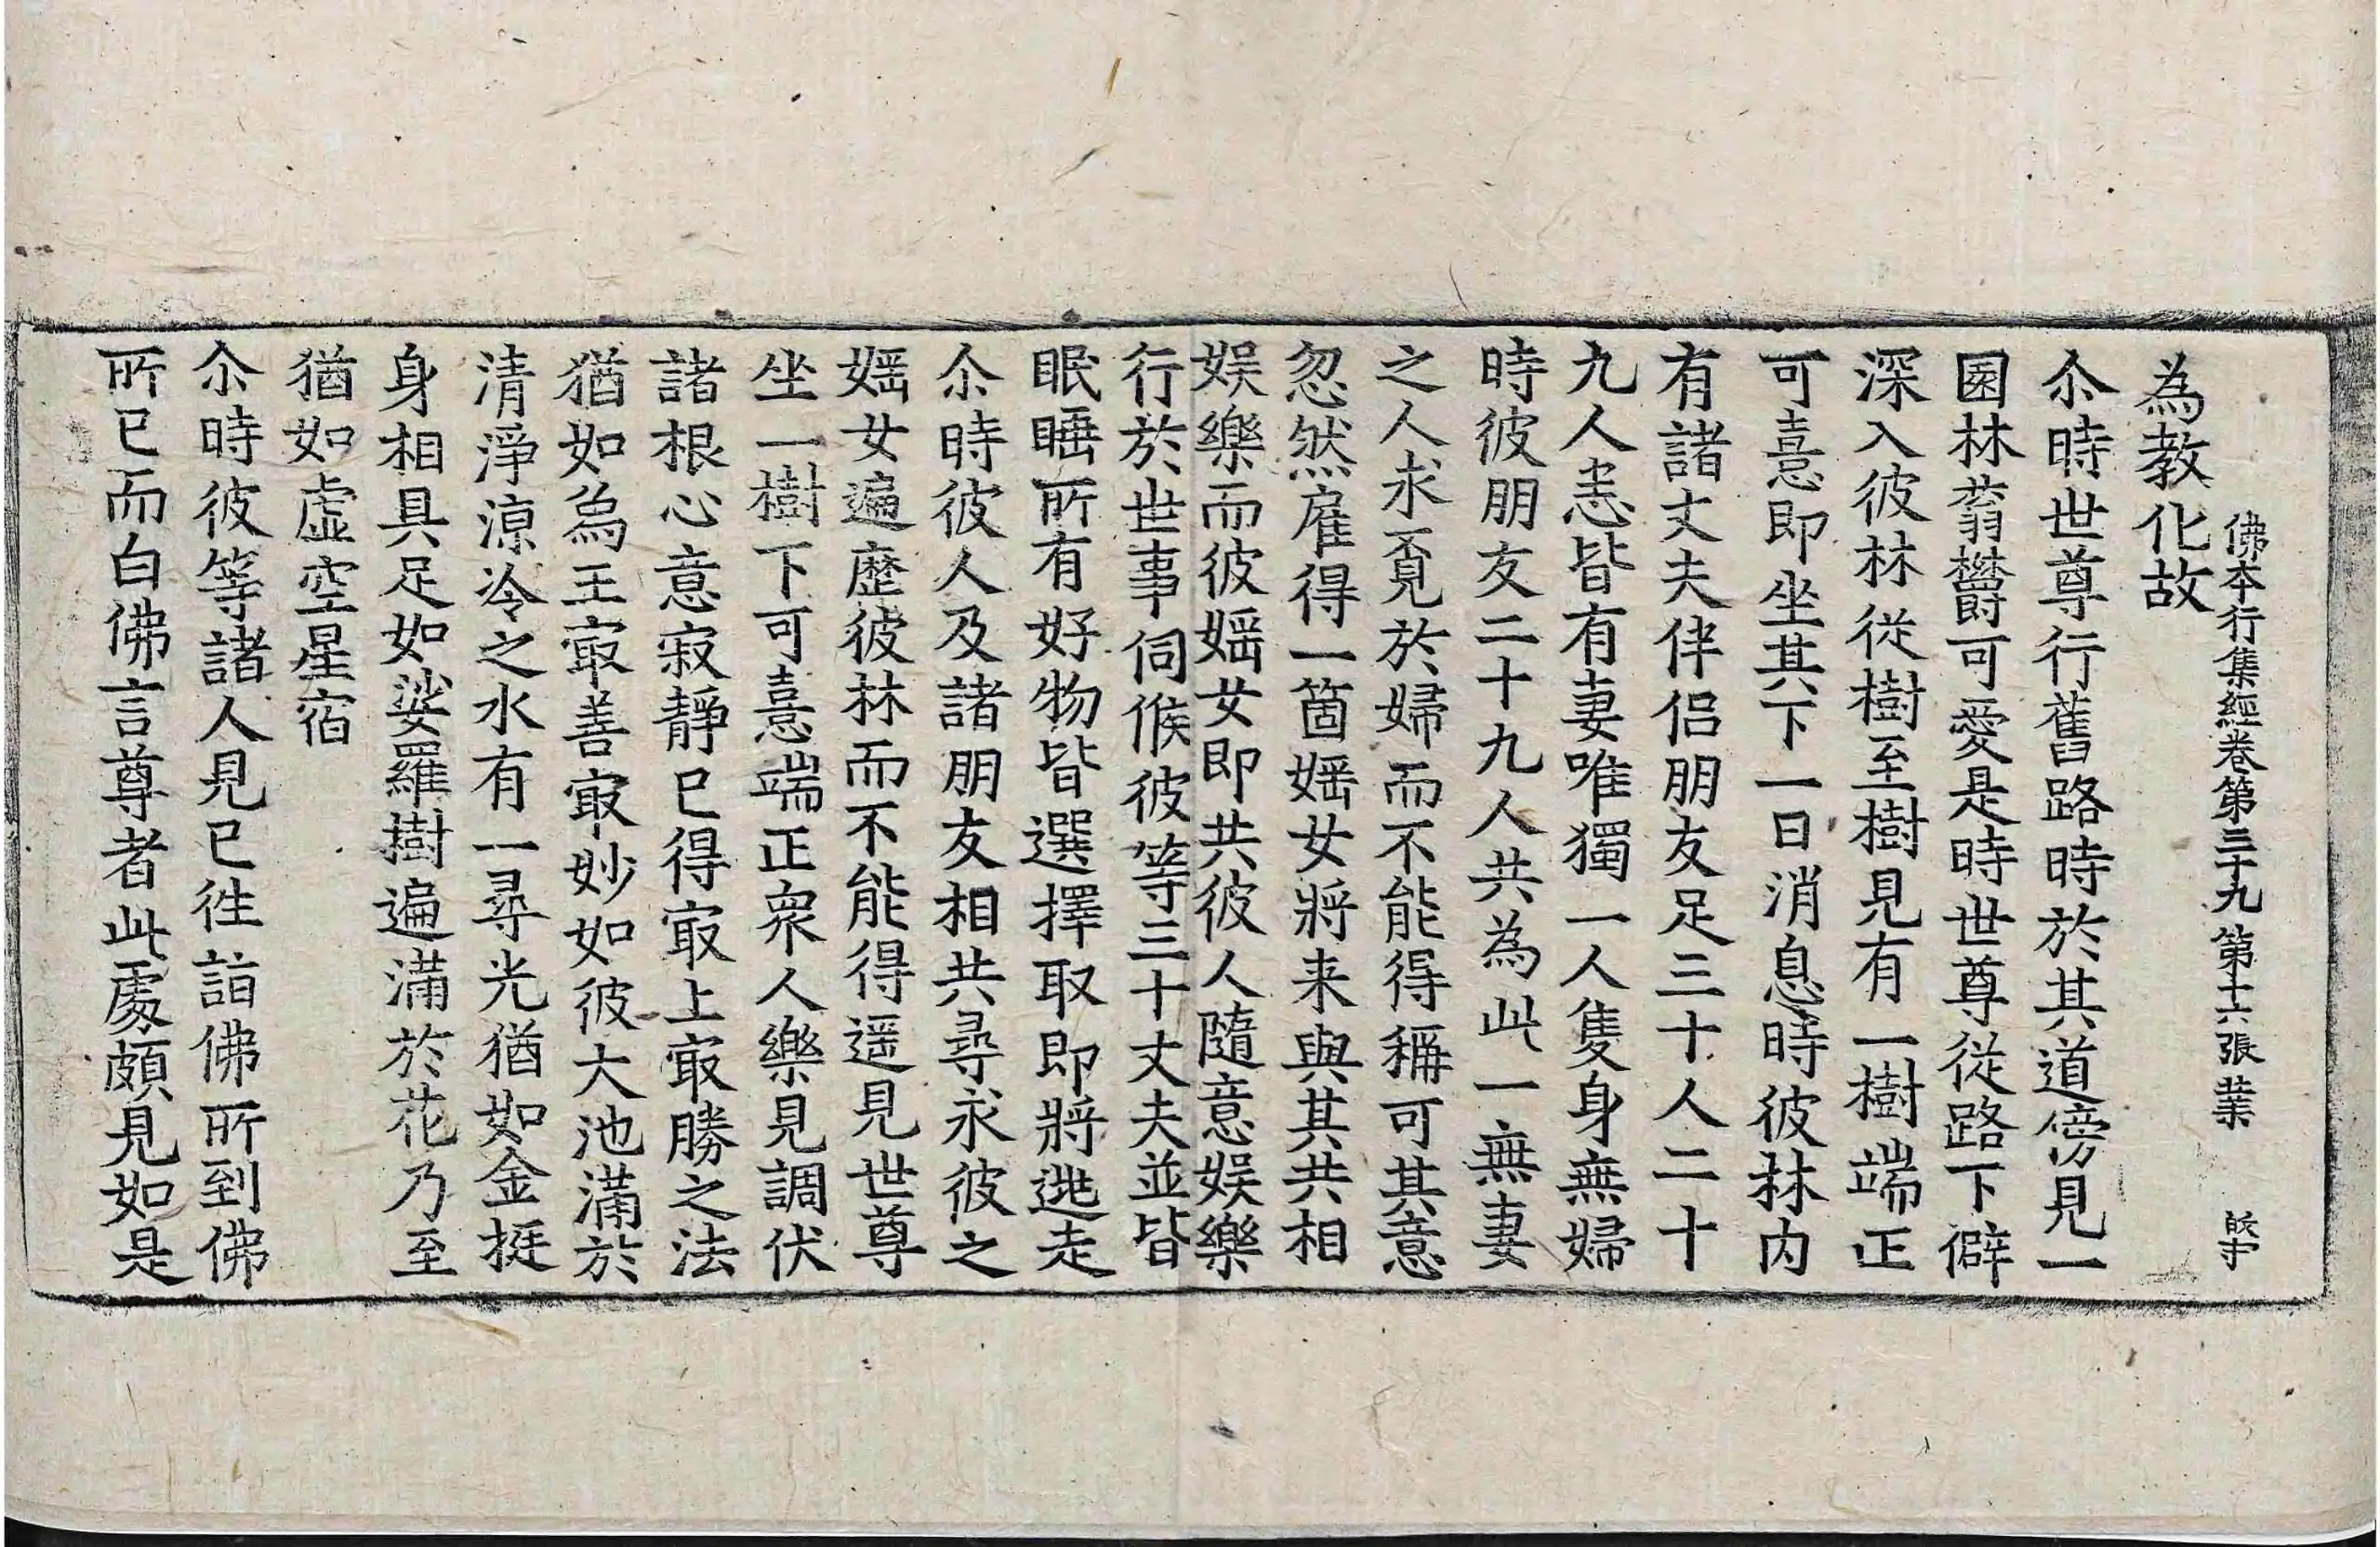 佛本行集經卷第三十九 第十六張 業
為教化故
尒時世尊行舊路時於其道傍見一
園林蓊欝可愛是時世尊從路下僻
深入彼林從樹至樹見有一樹端正
可憙即坐其下一日消息時彼林内
有諸丈夫伴侶朋友足三十人二十
九人恚皆有妻唯獨一人隻身無婦
時彼朋友二十九人共為此一無妻
之人求覓於婦而不能得稱可其意
忽然雇得一箇婬女將来與其共相
娱樂而彼婬女即共彼人隨意娱樂
行於世事伺候彼等三十丈夫並皆
眠睡所有好物皆選擇取即將逃走
尒時彼人及諸朋友相共尋求彼之
婬女遍歷彼林而不能得遥見世尊
坐一樹下可憙端正衆人樂見調伏
諸根心意寂靜已得㝡上㝡勝之法
猶如烏王㝡善㝡妙如彼大池滿於
清淨涼冷之水有一尋光猶如金挺
身相具足如娑羅樹遍滿於花乃至
猶如虚空星宿
尒時彼等諸人見已往詣佛所到佛
所已而白佛言尊者此處頗見如是